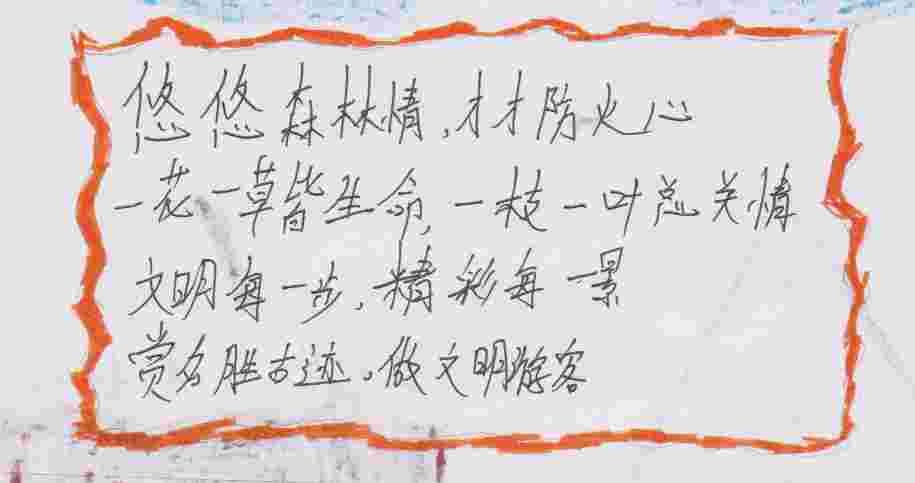 悠悠森林情,才才防火心
一花一草皆生命,一枝一叶总关情
文明每一步,精彩每一景
赏名胜古迹,做文明游客